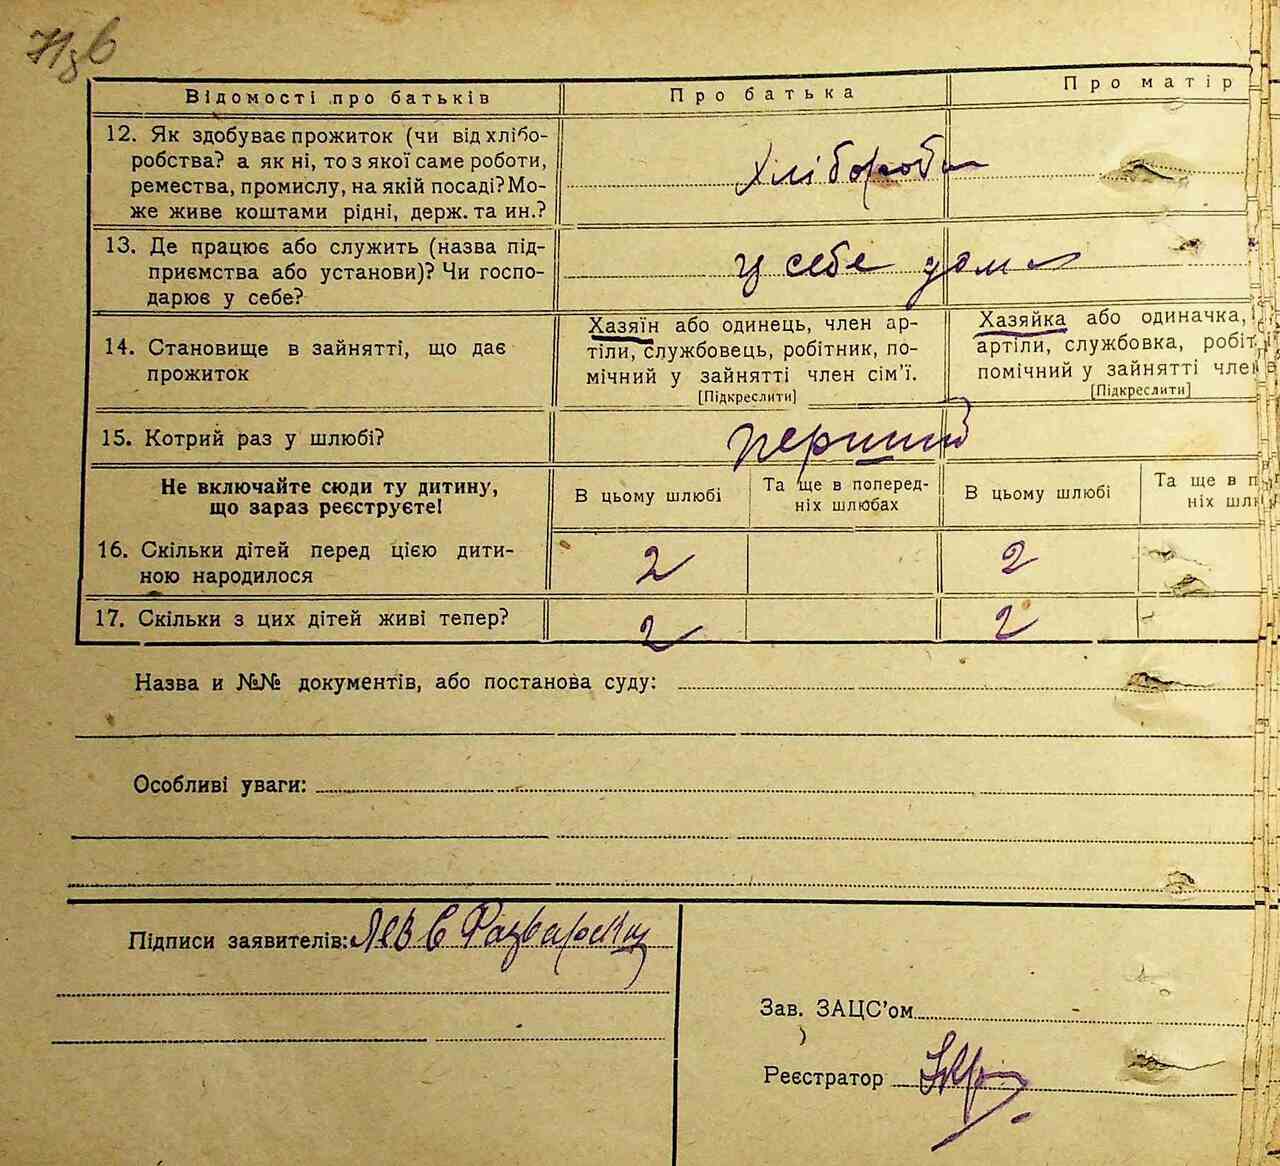 Відомості про батьків
Про батька
Про матір
12. Як здобуває прожиток (чи від хлібо-
робства? а як ні, то з якої саме роботи,
ремества, промислу, на якій посаді? Мо-
же живе коштами рідні, держ. та ин.?
хлібороби
13. Де працює або служить (назва під-
приємства або установи)? Чи госпо-
дарює у себе?
у себе дома
14. Становище в зайнятті, що дає
прожиток
Хазяїн або одинець, член ар-
тіли, службовець, робітник, по-
мічний у зайнятті член сім'ї.
[Підкреслити]
Хазяйка або одиначка,
артіли, службовка, робіт
помічний у зайнятті член
[Підкреслити]
15. Котрий раз у шлюбі?
перший
Не включайте сюди ту дитину,
що зараз реєструєте!
В цьому шлюбі
Та ще в поперед-
ніх шлюбах
В цьому шлюбі
Та ще в п
ніх шлю
16. Скільки дітей перед цією дити-
ною народилося
2
2
17. Скільки з цих дітей живі тепер?
2
2
Назва и №№ документів, або постанова суду:
Особливі уваги:
Підписи заявителів:
Зав. ЗАЦС'ом
Реєстратор